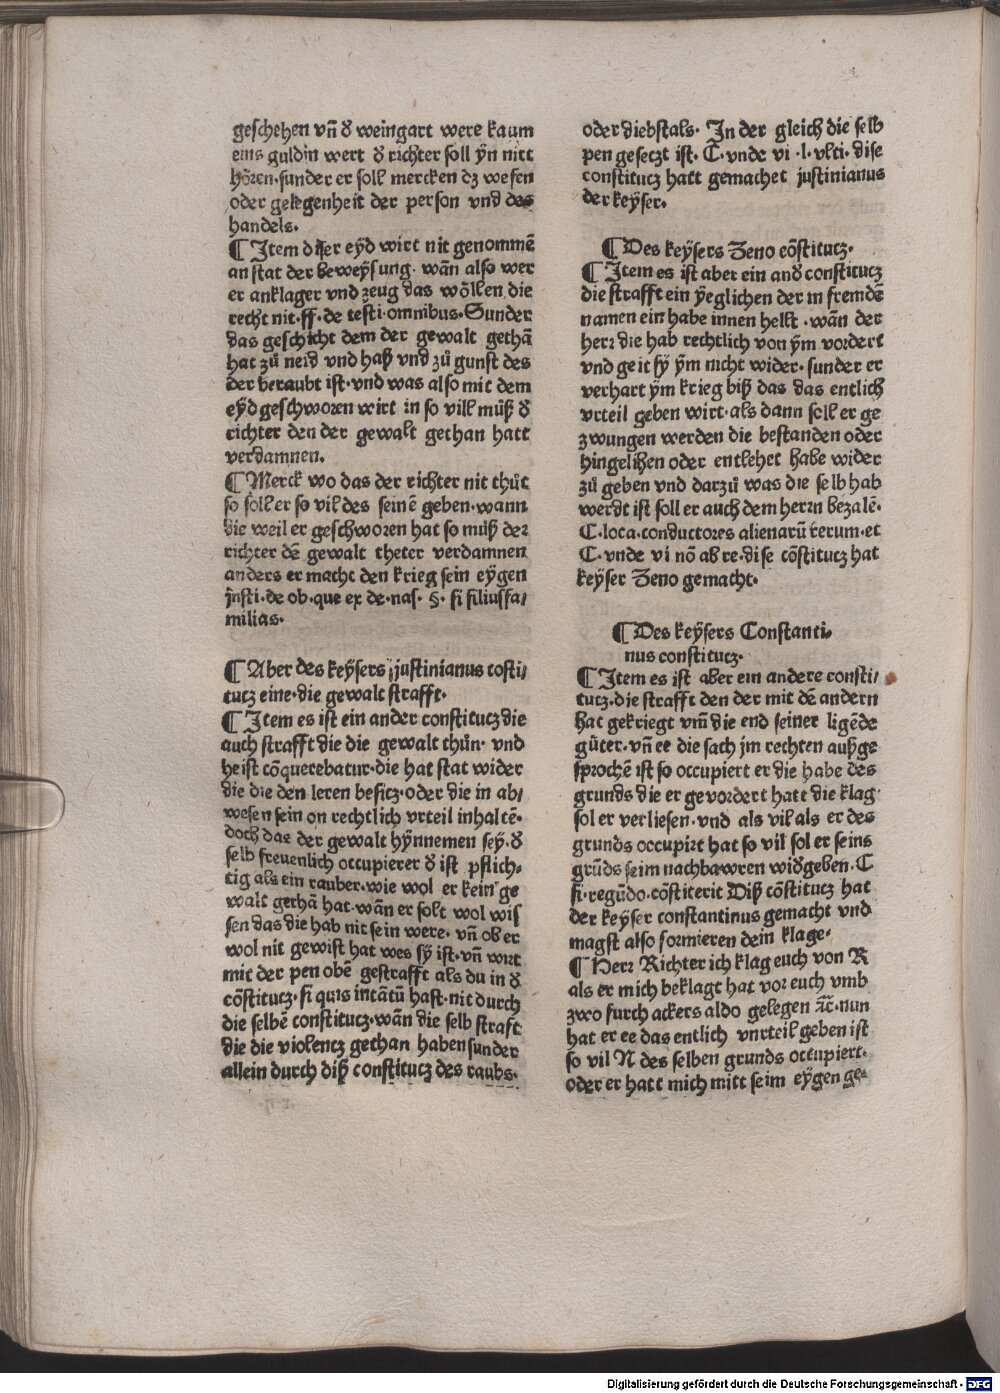 geschehen vñ ď weingart were kaum
eins guldin wert ď richter soll ÿn nitt
hören·sunder er soll mercken dz wesen
oder gelegenheit der person vnd des
handels.
¶ Item diser eÿd wirt nit genommẽ
an stat der beweÿsung· wãn also wer
er anklager vnd zeug das wöllen die
recht nit·ff·de testi·omnibus·Sunder
das geschicht dem der gewalt gethã
hat zů neid vnd haß vnd zů gunst des
der beraubt ist·vnd was also mit dem
eÿd geschworen wirt in so vill můß ď
richter den der gewalt gethan hatt
verdamnen.
¶ Merck wo das der richter nit thůt
so soll er so vil des seinẽ geben·wann
die weil er geschworen hat so můß der
richter dẽ gewalt theter verdamnen
anders er macht den krieg sein eÿgen
ÿnsti·de ob·que ex de·nas· §· si filiusfa/
milias·
¶ Aber des keÿsers justinianus costi/
tucz eine·die gewalt strafft·
¶ Item es ist ein ander constitucz die
auch strafft die die gewalt thůn· vnd
heist cõquerebatur·die hat stat wider
die die den leren besitz·oder die in ab/
wesen sein on rechtlich vrteil inhaltẽ·
doch das der gewalt hÿnnemen seÿ·ď
selb freuenlich occupierer ď ist pflich/
tig als ein rauber·wie wol er kein ge
walt gethã hat·wãn er solt wol wis
sen das die hab nit sein were· vñ ob er
wol nit gewist hat wes sÿ ist·vñ wirt
mit der pen obẽ gestrafft als du in ď
cõstitucz·si quis intãtũ hast·nit durch
die selbẽ constitucz·wãn die selb straft
die die violentz gethan haben sunder
allein durch diß constitucz des raubs·
oder diebstals· In der gleich die selb
pen gesetzt ist· C·vnde vi ·l·vlti· dise
constitucz hatt gemachet justinianus
der keÿser·
¶ Des keÿsers Zeno cõstitucz·
¶ Item es ist aber ein anď constitucz
die strafft ein ÿeglichen der in fremdẽ
namen ein habe innen hellt ·wãn der
herr die hab rechtlich von ÿm vordert
vnd geit sÿ ÿm nicht wider·sunder er
verhart ÿm krieg biß das das entlich
vrteil geben wirt·als dann soll er ge
zwungen werden die bestanden oder
hingelihen oder entlehet habe wider
zů geben vnd darzů was die selb hab
werdt ist soll er auch dem herrn bezalẽ·
C·loca·conductores alienarũ rerum·et
C·vnde vi nõ ab re·dise cõstitucz hat
keÿser Zeno gemacht·
¶ Des keÿsers Constanti·
nus constitucz·
¶ Item es ist aber ein andere consti/
tucz·die strafft den der mit dẽ andern
hat gekriegt vm̃ die end seiner ligẽde
gůter·vñ ee die sach jm rechten außge
sprochẽ ist so occupiert er die habe des
grunds die er gevordert hatt die klag·
sol er verliesen·vnd als vil als er des
grunds occupirt hat so vil sol er seins
grũds seim nachbawren wiďgeben·C
fi·regũdo·cõstiterit Diß cõstitucz hat
der keÿser constantinus gemacht vnd
magst also formieren dein klage·
¶ Herr Richter ich klag euch von R
als er mich beklagt hat vor euch vmb
zwo furch ackers aldo gelegen ⁊c̃·nun
hat er ee das entlich vnrteil geben ist
so vil N des selben grunds occupiert·
oder er hatt mich mitt seim eÿgen ge·
Digitalisierung gefördert durch die Deutsche Forschungsgemeinschaft - DFG